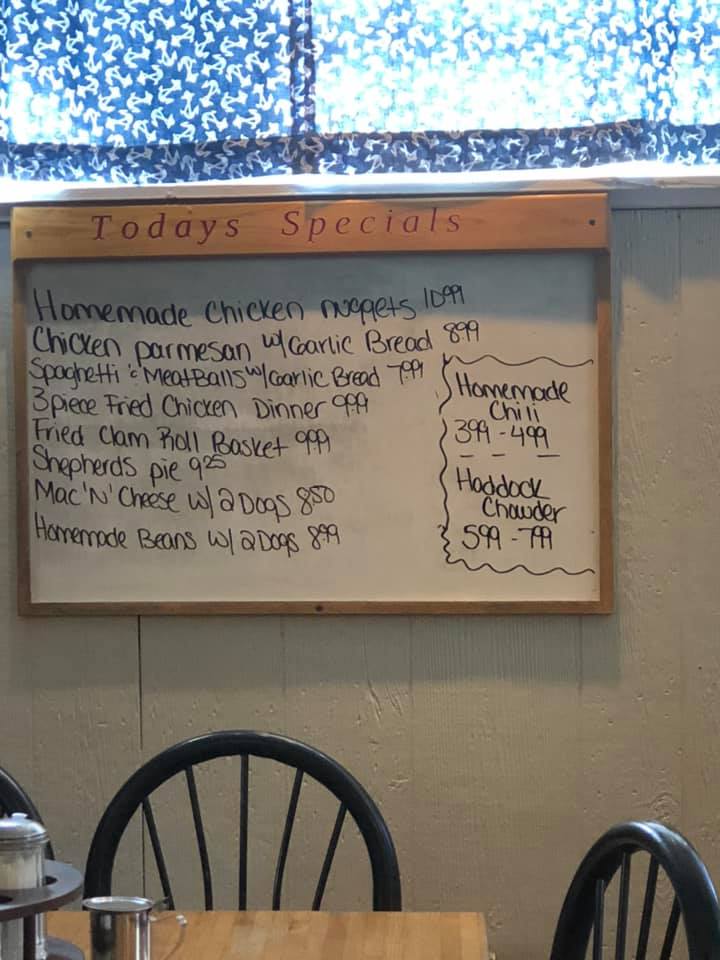 Todays Specials
Homemade Chicken nuggets 1099
Chicken parmesan w/Garlic Bread 899
Spaghetti 'c' MeatBalls w/Garlic Bread 799
3 piece Fried Chicken Dinner 999
Fried Clam Roll Basket 999
Shepherds pie 925
Mac 'N' Cheese w/ 2 Dogs 850
Homemade Beans w/ 2 Dogs 899
Homemade
Chili
399 - 499
Haddock
Chowder
599 - 799